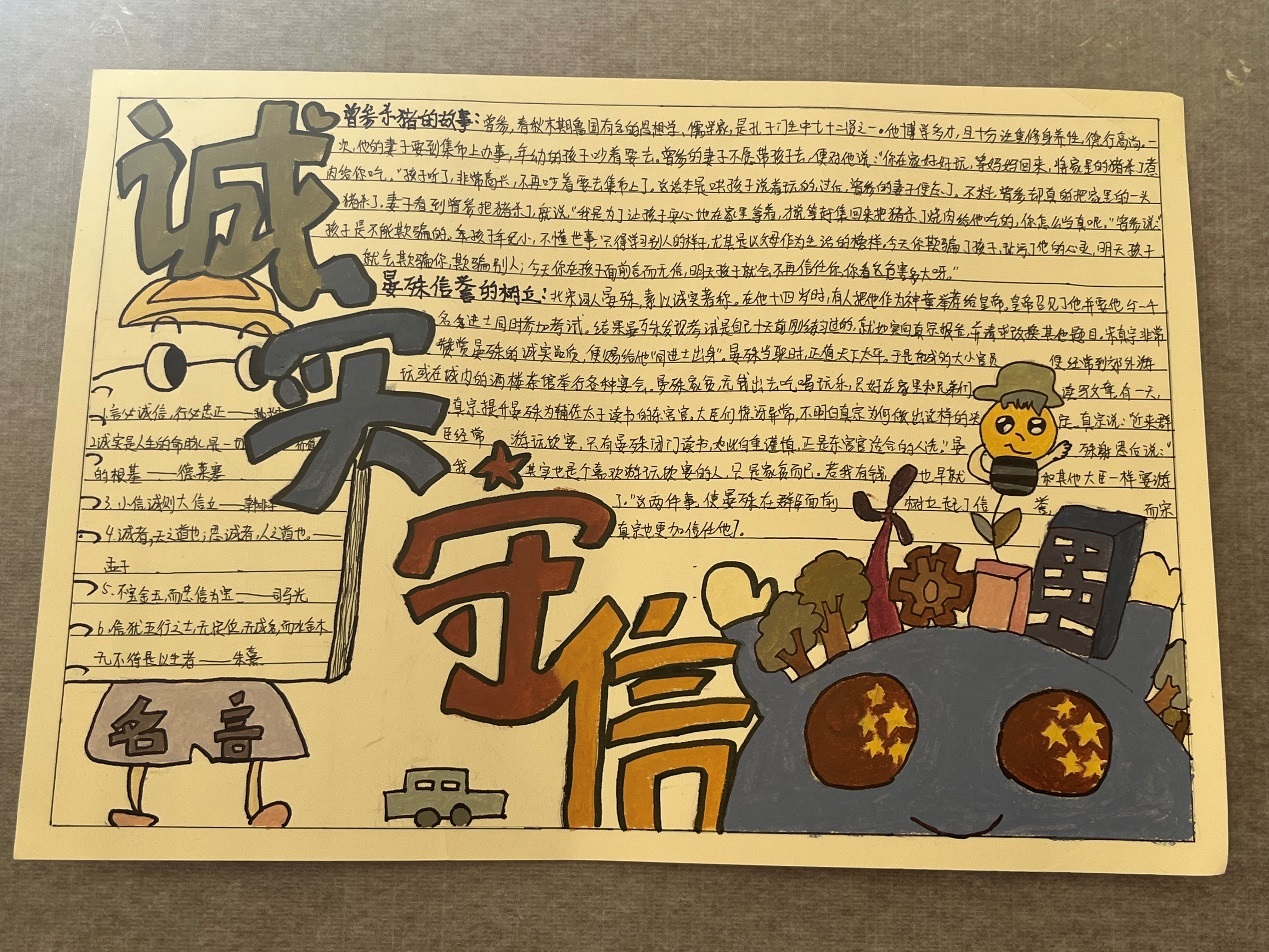 诚
实
守
信
曾参杀猪的故事：曾参，春秋末期鲁国有名的思想家、儒学家，是孔子门生中七十二贤之一。他博学多才，且十分注重修身养性，德行高尚。一
次，他的妻子要到集市上办事，年幼的孩子吵着要去。曾参的妻子不愿带孩子去，便对他说："你在家好好玩，等妈妈回来，将家里的猪杀了煮
肉给你吃。"孩子听了，非常高兴，不再吵着要去集市上了。这话本是哄孩子说着玩的，过后，曾参的妻子便忘了。不料，曾参却真的把家里的一头
猪杀了。妻子看到曾参把猪杀了，就说，"我是为了让孩子安心地在家里等着，才说等赶集回来把猪杀了烧肉给他吃的，你怎么当真呢。"曾参说："
孩子是不能欺骗的。年孩子年纪小，不懂世事，只得学习别人的样子，尤其是以父母作为生活的榜样。今天你欺骗了孩子，玷污了他的心灵，明天孩子
就会欺骗你，欺骗别人；今天你在孩子面前言而无信，明天孩子就会不再信任你，你看这危害多大呀。"
晏殊信誉的树立：北宋词人晏殊，素以诚实著称。在他十四岁时，有人把他作为神童举荐给皇帝。皇帝召见了他，并要他与一千
名进士同时参加考试。结果晏殊发现考试是自己十天前刚练习过的，就如实向真宗报告，并请求改换其他题目。宋真宗非常
赞赏晏殊的诚实品质，便赐给他"同进士出身"。晏殊当职时，正值天下太平。于是京城的大小官员 便经常到郊外游
玩或在城内的酒楼茶馆举行各种宴会。晏殊家贫，无钱出去吃喝玩乐，只好在家里和兄弟们 读写文章。有一天，
真宗提升晏殊为辅佐太子读书的东宫官。大臣们惊讶异常，不明白真宗为何做出这样的决 定。真宗说："近来群
臣经常 游玩饮宴，只有晏殊闭门读书，如此自重谨慎，正是东宫官合适的人选。"晏 殊谢恩后说："
我 其实也是个喜欢游玩饮宴的人，只是家贫而已。若我有钱 也早就 和其他大臣一样宴游
了。"这两件事，使晏殊在群臣面前 树立起了信 誉， 而宋
真宗也更加信任他了。
1.言必诚信，行必忠正——
2.诚实是人生的命脉，是一切
的根基——德莱塞
3.小信诚则大信立——韩非子
4.诚者，天之道也；思诚者，人之道也。——
孟子
5.不宝金玉，而忠信为宝——司马光
6.信犹五行之土，无定位，无成名，而水金木
无不待是以生者——朱熹
名言